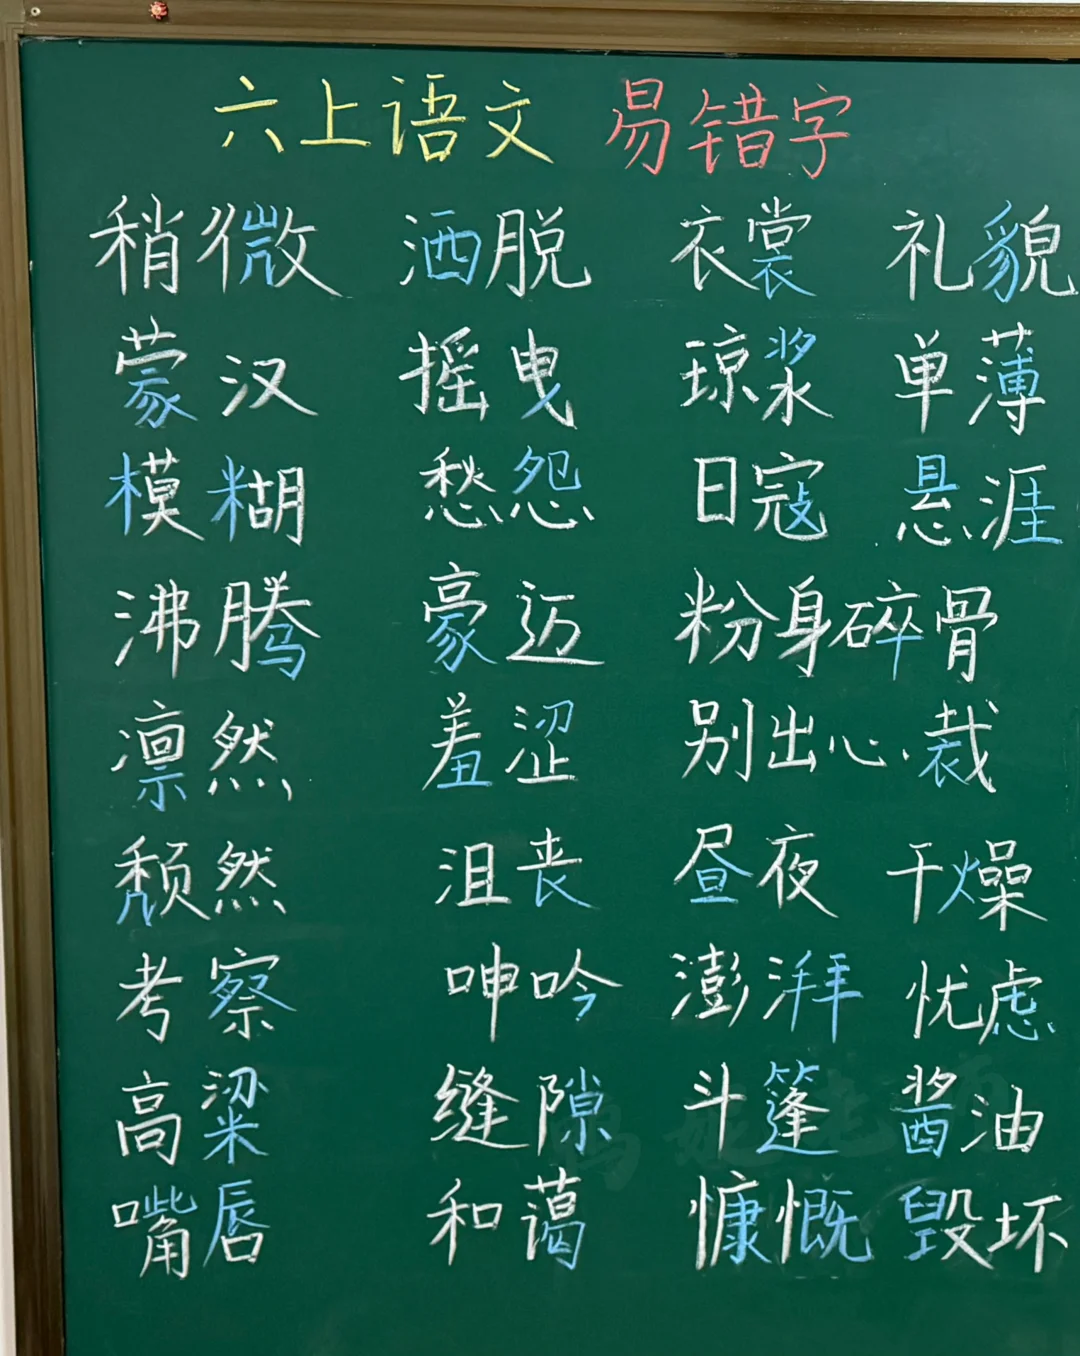 六上语文 易错字
稍微 洒脱 衣裳 礼貌
蒙汉 摇曳 琼浆 单薄
模糊 愁怨 日寇 悬涯
沸腾 豪迈 粉身碎骨
凛然 羞涩 别出心裁
颓然 沮丧 昼夜 干燥
考察 呻吟 澎湃 忧虑
高粱 缝隙 斗篷 酱油
嘴唇 和蔼 慷慨 毁坏